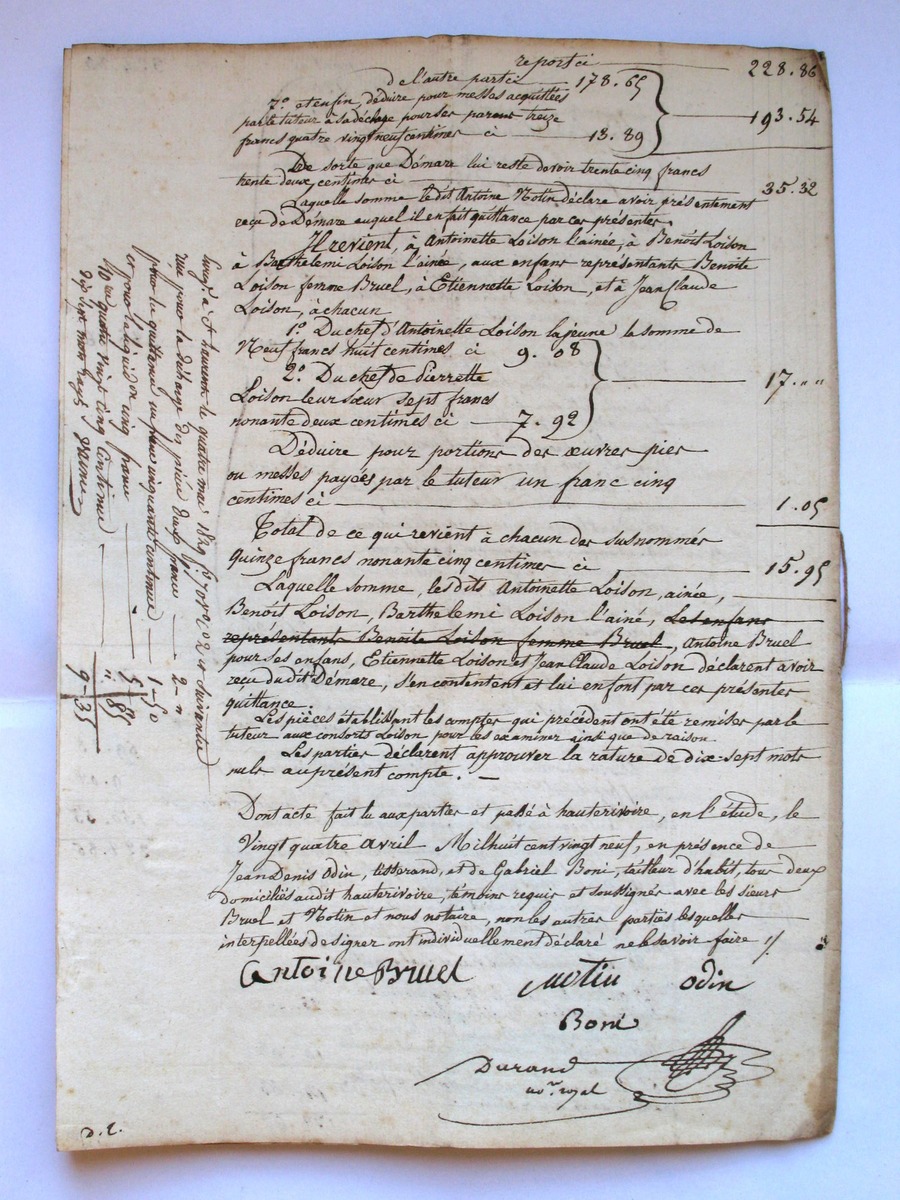 report ci 228.86
de l'autre part ci 178.65
7° et enfin, déduire pour messes acquittées
par le tuteur à sa décharge pour ses parens treize 193.54
francs quatre vingt neuf centimes ci 13.89
De sorte que Démare lui reste devoir trente cinq francs
trente deux centimes ci 35.32
Laquelle somme ledit Antoine Notin déclare avoir présentement
reçu de Démare auquel il en fait quittance par ces présentes.
Il revient, à Antoinette Loison l'ainée, à Benoit Loison
à Barthelemi Loison l'ainé, aux enfans représentants Benoite
Loison femme Bruel, à Etiennette Loison, et à Jean Claude
Loison, à chacun
1° Du chef d'Antoinette Loison la jeune la somme de
Neuf francs huit centimes ci 9.08
2° Du chef de Pierrette
Loison leur sœur sept francs 17 " "
nonante deux centimes ci 7.92
Déduire pour portions des œuvres pies
ou messes payées par le tuteur un franc cinq
centimes ci 1.05
Total de ce qui revient à chacun des susnommés
quinze francs nonante cinq centimes ci 15.95
Laquelle somme, les dits Antoinette Loison, ainée,
Benoît Loison, Barthelemi Loison l'ainé, Les enfans
représentants Benoite Loison femme Bruel, Antoine Bruel
pour ses enfans, Etiennette Loison et Jean Claude Loison déclarent avoir
reçu du dit Démare, s'en contentent et lui en font par ces présentes
quittance.
Les pièces établissant les comptes qui précédent ont été remises par le
tuteur aux consorts Loison pour les examiner ainsi que de raison
Les parties déclarent approuver la rature de dix-sept mots
nuls au présent compte.
Dont acte fait lu aux parties et passé à hauterivoire, en l'étude, le
Vingt quatre avril Mil huit cent vingt neuf, en présence de
Jean Denis Odin, tisserand, et de Gabriel Boni, tailleur d'habit, tous deux
domiciliés audit hauterivoire, témoins requis et soussignés avec les sieurs
Bruel et Notin et nous notaire, non les autres parties lesquelles
interpellées de signer ont individuellement déclaré ne le savoir faire
Antoine Bruel Notin odin
Boni
Durand
no.re royal
D. E.
le quatre mai 1829 f° 102 et suivantes
reçu pour la décharge des pièces deux francs 2 - "
pour la quittance un franc cinquante centimes 1 - 50
cinq francs 5 "
quatre vingt cinq centimes 85
9 - 35